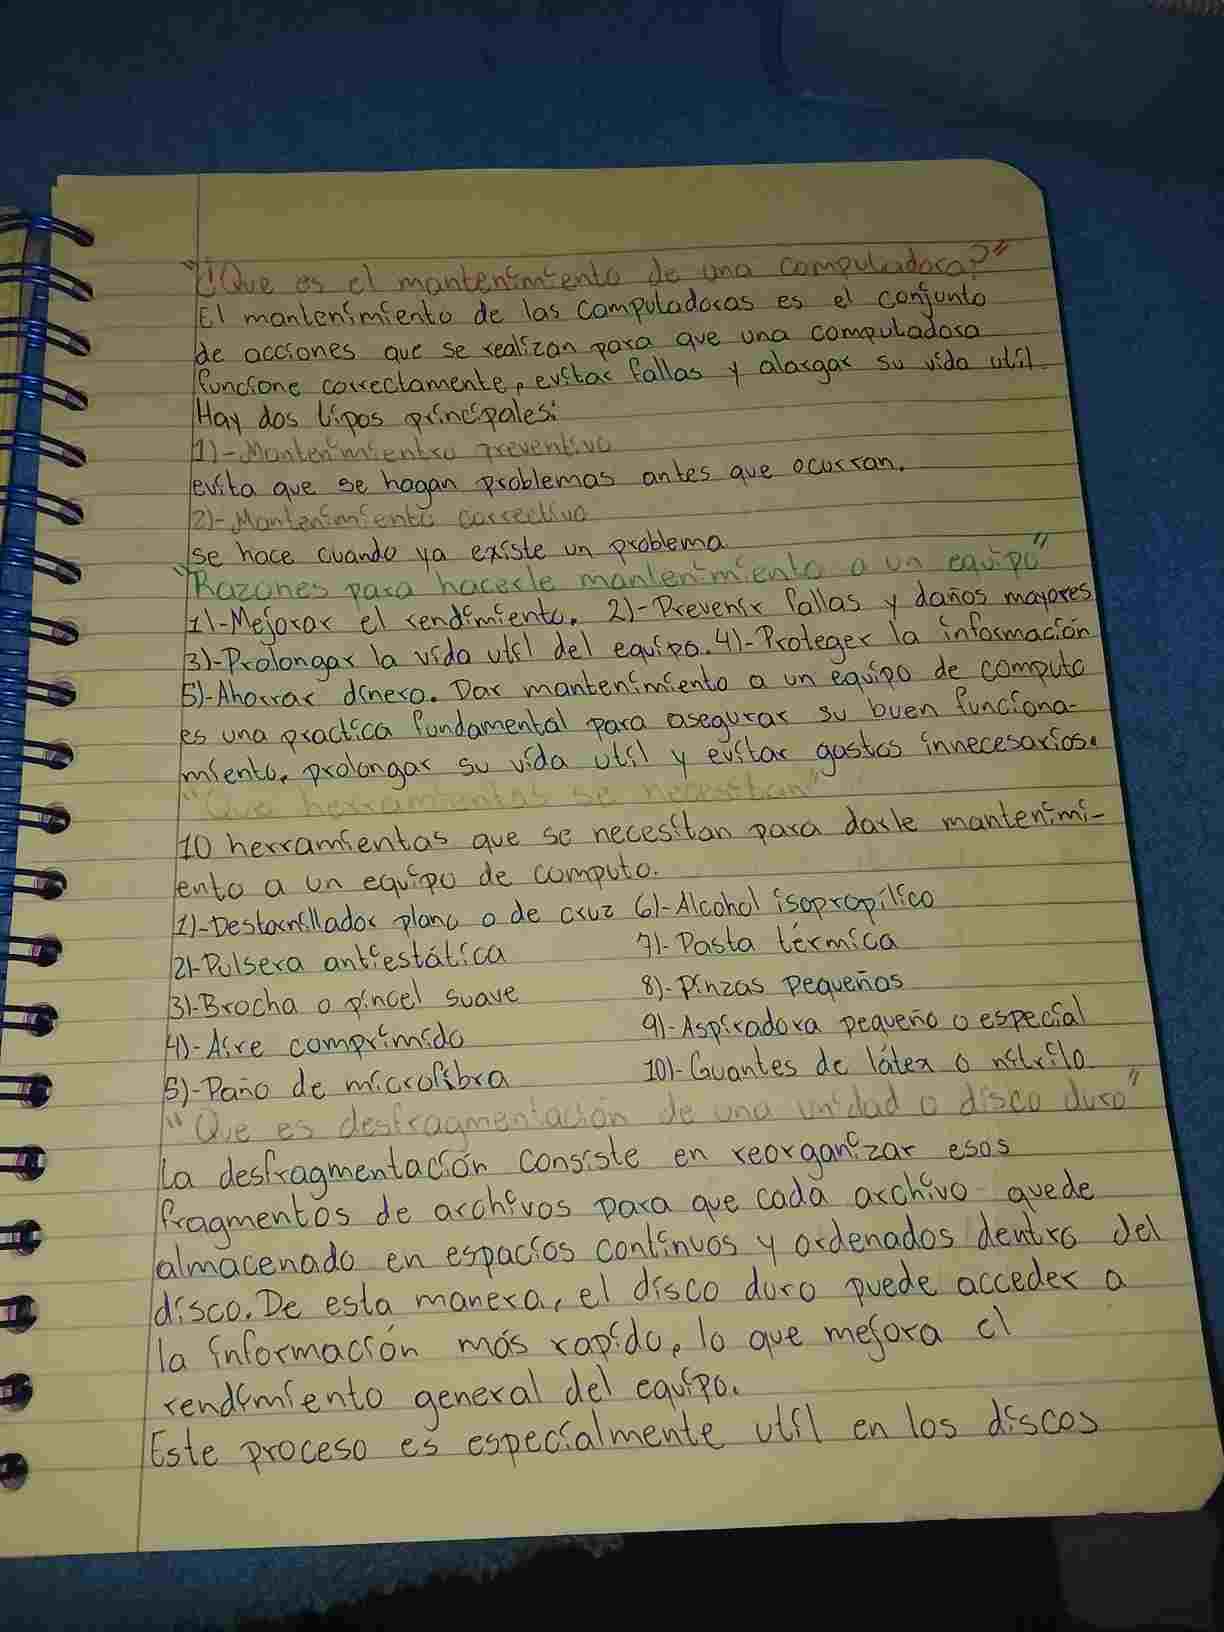 "¿Que es el mantenimiento de una computadora?"
El mantenimiento de las computadoras es el conjunto
de acciones que se realizan para que una computadora
funcione correctamente, evitar fallas y alargar su vida util.
Hay dos tipos principales:
1)-Mantenimientro preventivo
evita que se hagan problemas antes que ocurran.
2)-Mantenimiento correctivo
se hace cuando ya existe un problema
"Razones para hacerle mantenimiento a un equipo"
1)-Mejorar el rendimiento. 2)-Prevenir fallas y daños mayores
3)-Prolongar la vida util del equipo. 4)-Proteger la información
5)-Ahorrar dinero. Dar mantenimiento a un equipo de computo
es una practica fundamental para asegurar su buen funciona-
miento, prolongar su vida util y evitar gastos innecesarios.
"Que herramientas se necesitan"
10 herramientas que se necesitan para darle mantenimi-
ento a un equipo de computo.
1)-Destornillador plano o de cruz 6)-Alcohol isopropílico
2)-Pulsera antiestática 7)-Pasta térmica
3)-Brocha o pincel suave 8)-Pinzas pequeñas
4)-Aire comprimido 9)-Aspiradora pequeño o especial
5)-Paño de microfibra 10)-Guantes de látex o nitrilo
"Que es desfragmentación de una unidad o disco duro"
La desfragmentación consiste en reorganizar esos
fragmentos de archivos para que cada archivo quede
almacenado en espacios continuos y ordenados dentro del
disco. De esta manera, el disco duro puede acceder a
la información más rapido, lo que mejora el
rendimiento general del equipo.
Este proceso es especialmente util en los discos